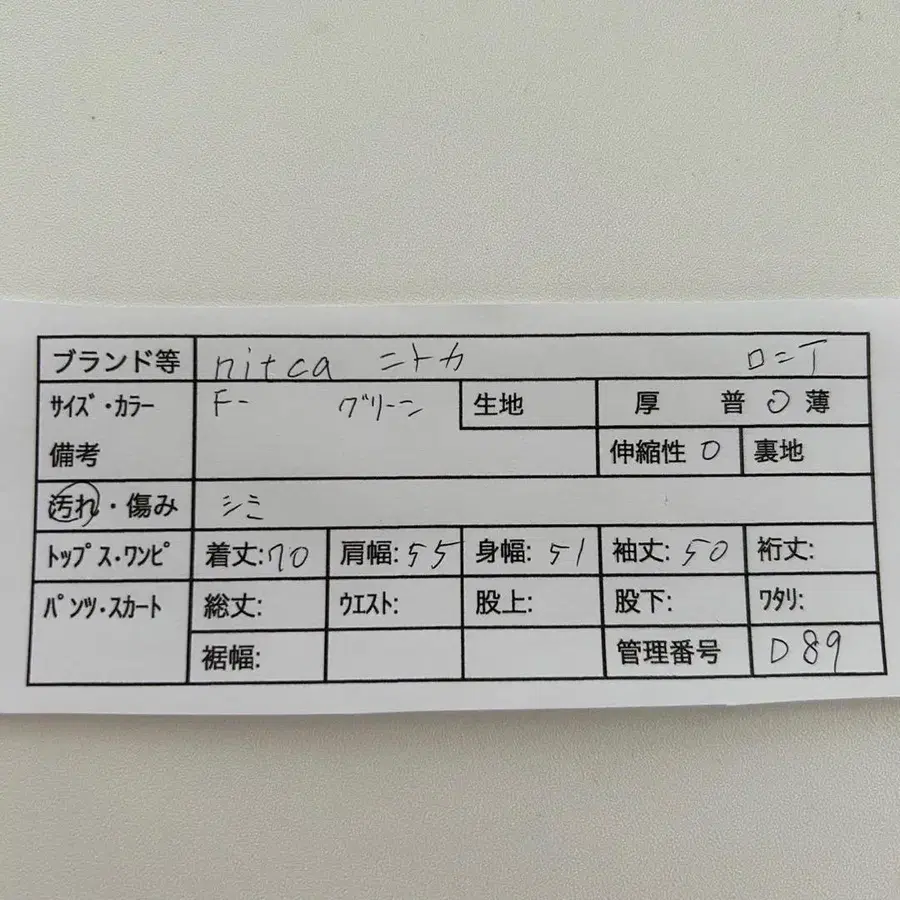 ブランド等 nitca ニトカ ロニT
ｻｲｽﾞ・ｶﾗｰ F- グリーン 生地 厚 普 〇 薄
備考 伸縮性 〇 裏地
汚れ・傷み シミ
ﾄｯﾌﾟｽ・ﾜﾝﾋﾟ 着丈:70 肩幅:55 身幅:51 袖丈:50 裄丈:
ﾊﾟﾝﾂ・ｽｶｰﾄ 総丈: ｳｴｽﾄ: 股上: 股下: ﾜﾀﾘ:
裾幅: 管理番号 D89